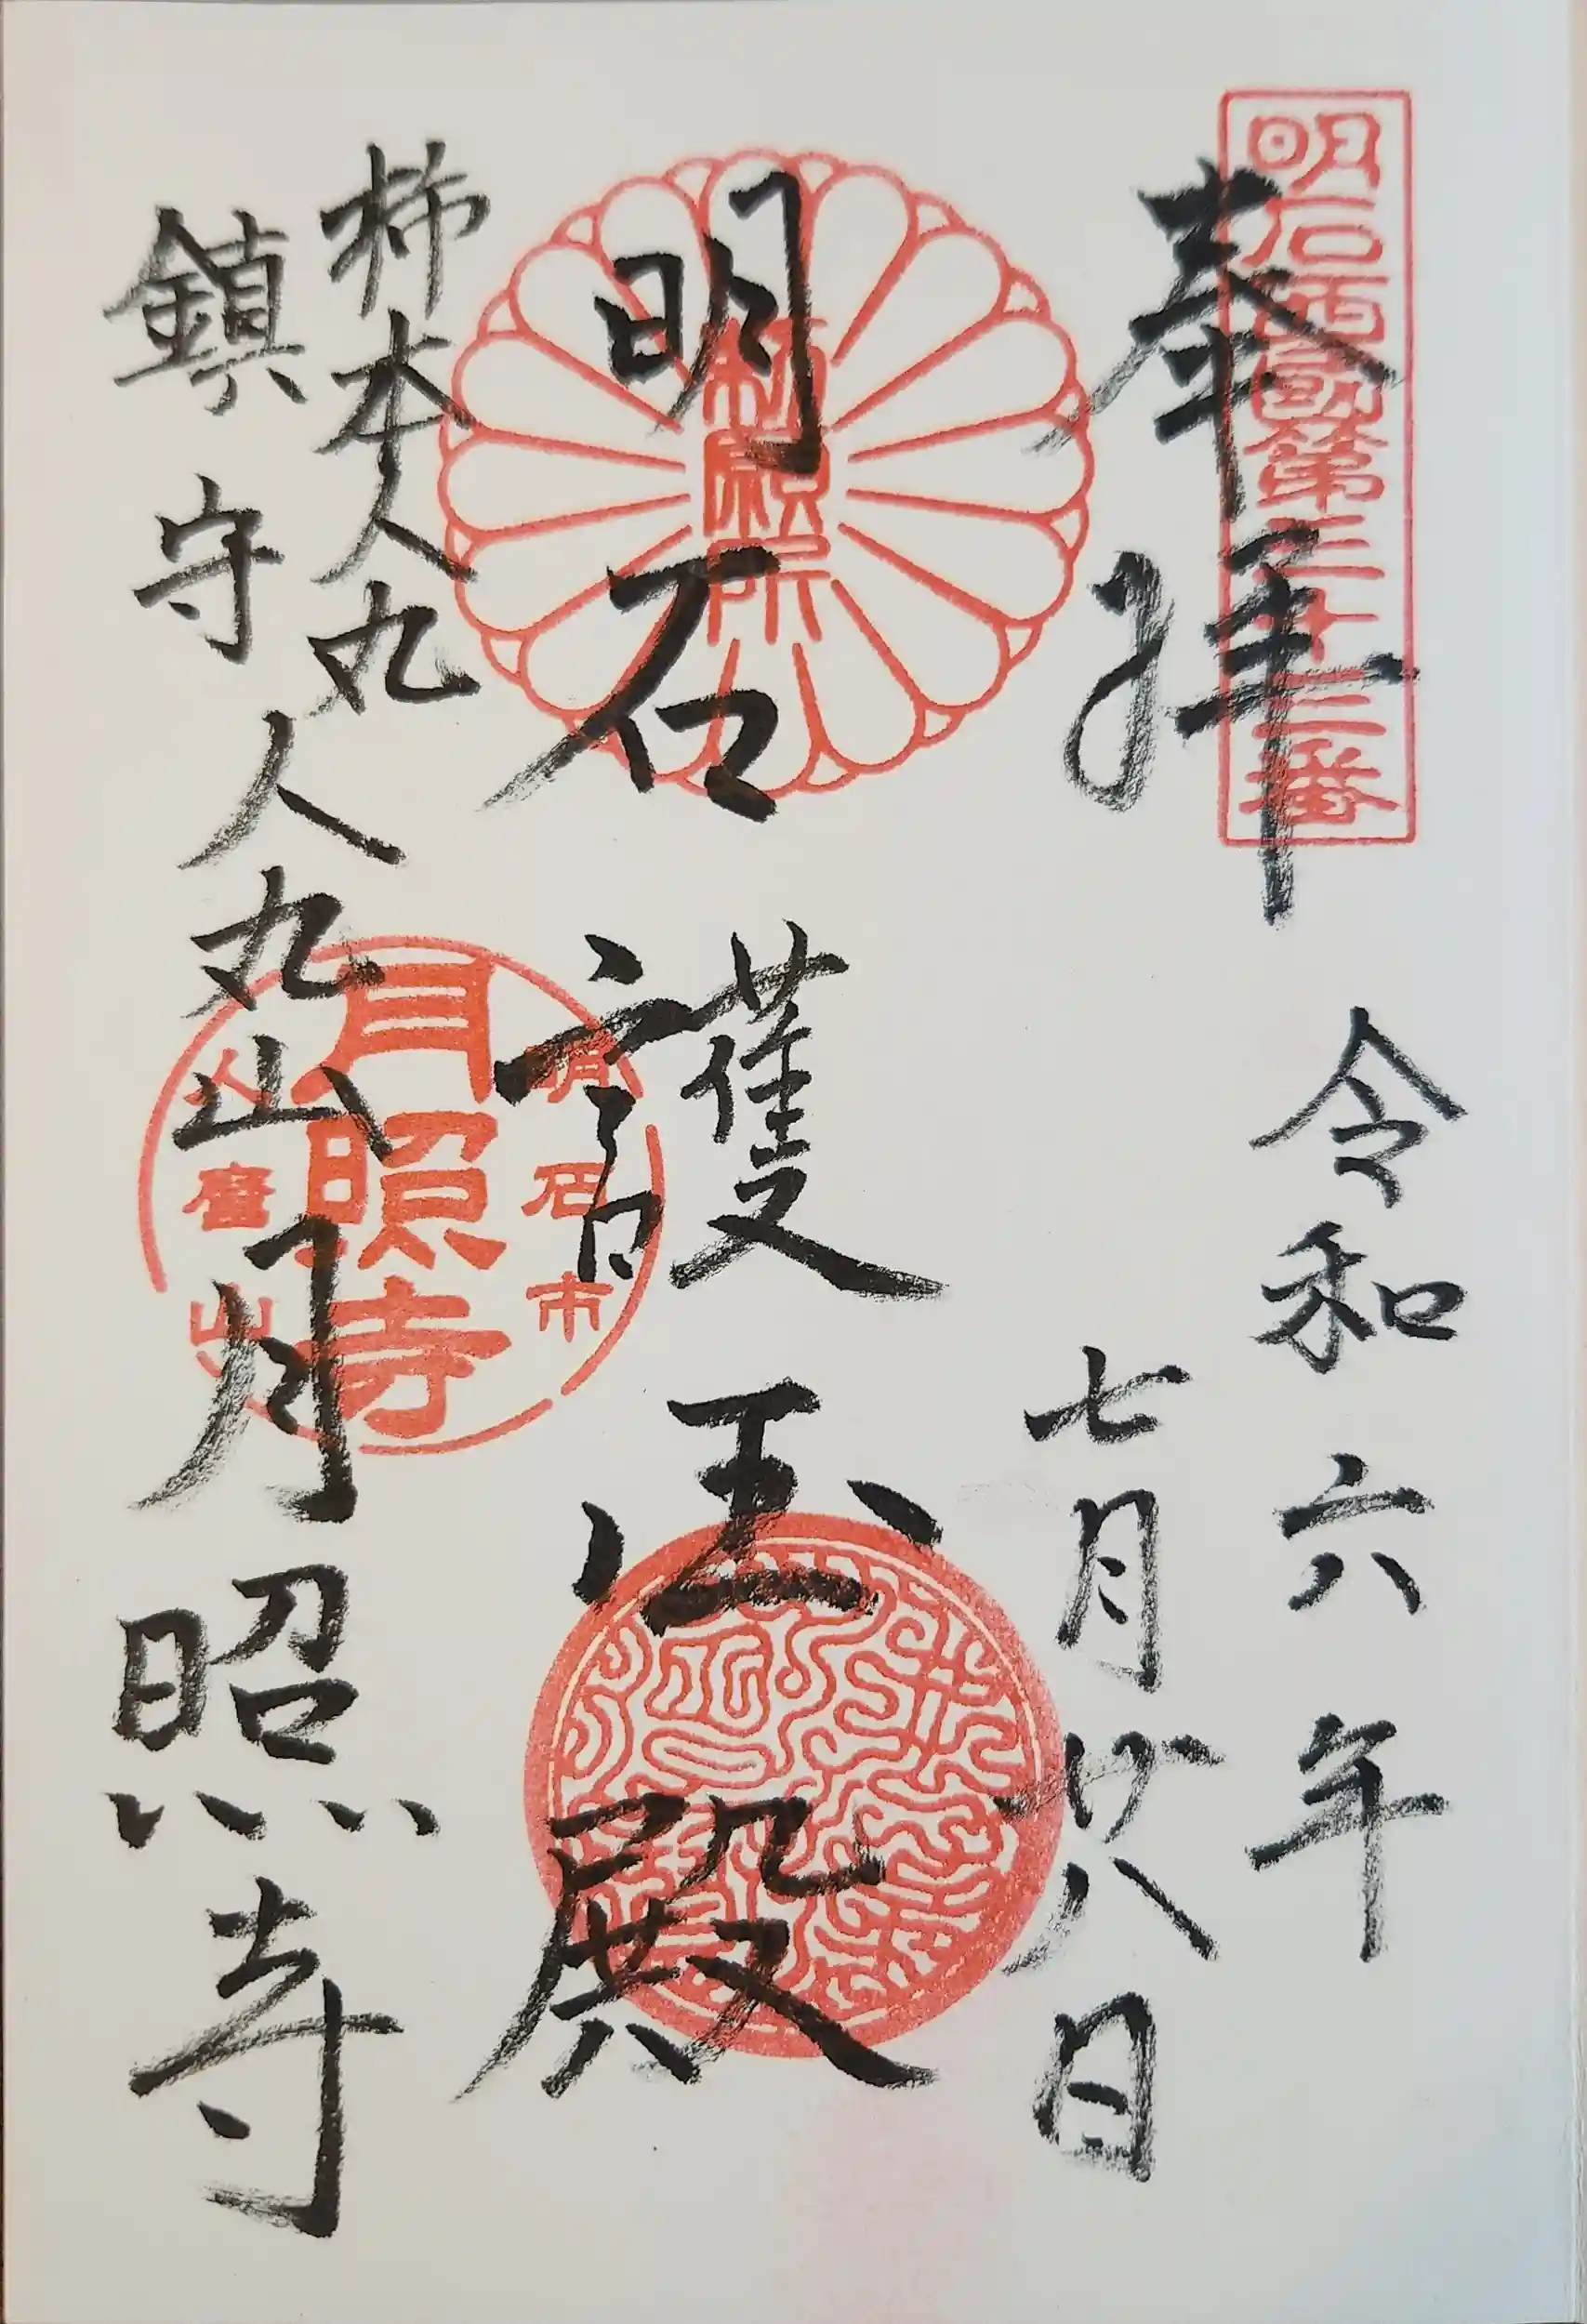 明石西國第三十三番
奉拝
令和六年
七月廿八日
明石護法殿
勅願所
柿本人丸
鎮守
人丸山月照寺
月照寺
明石市
人麿山